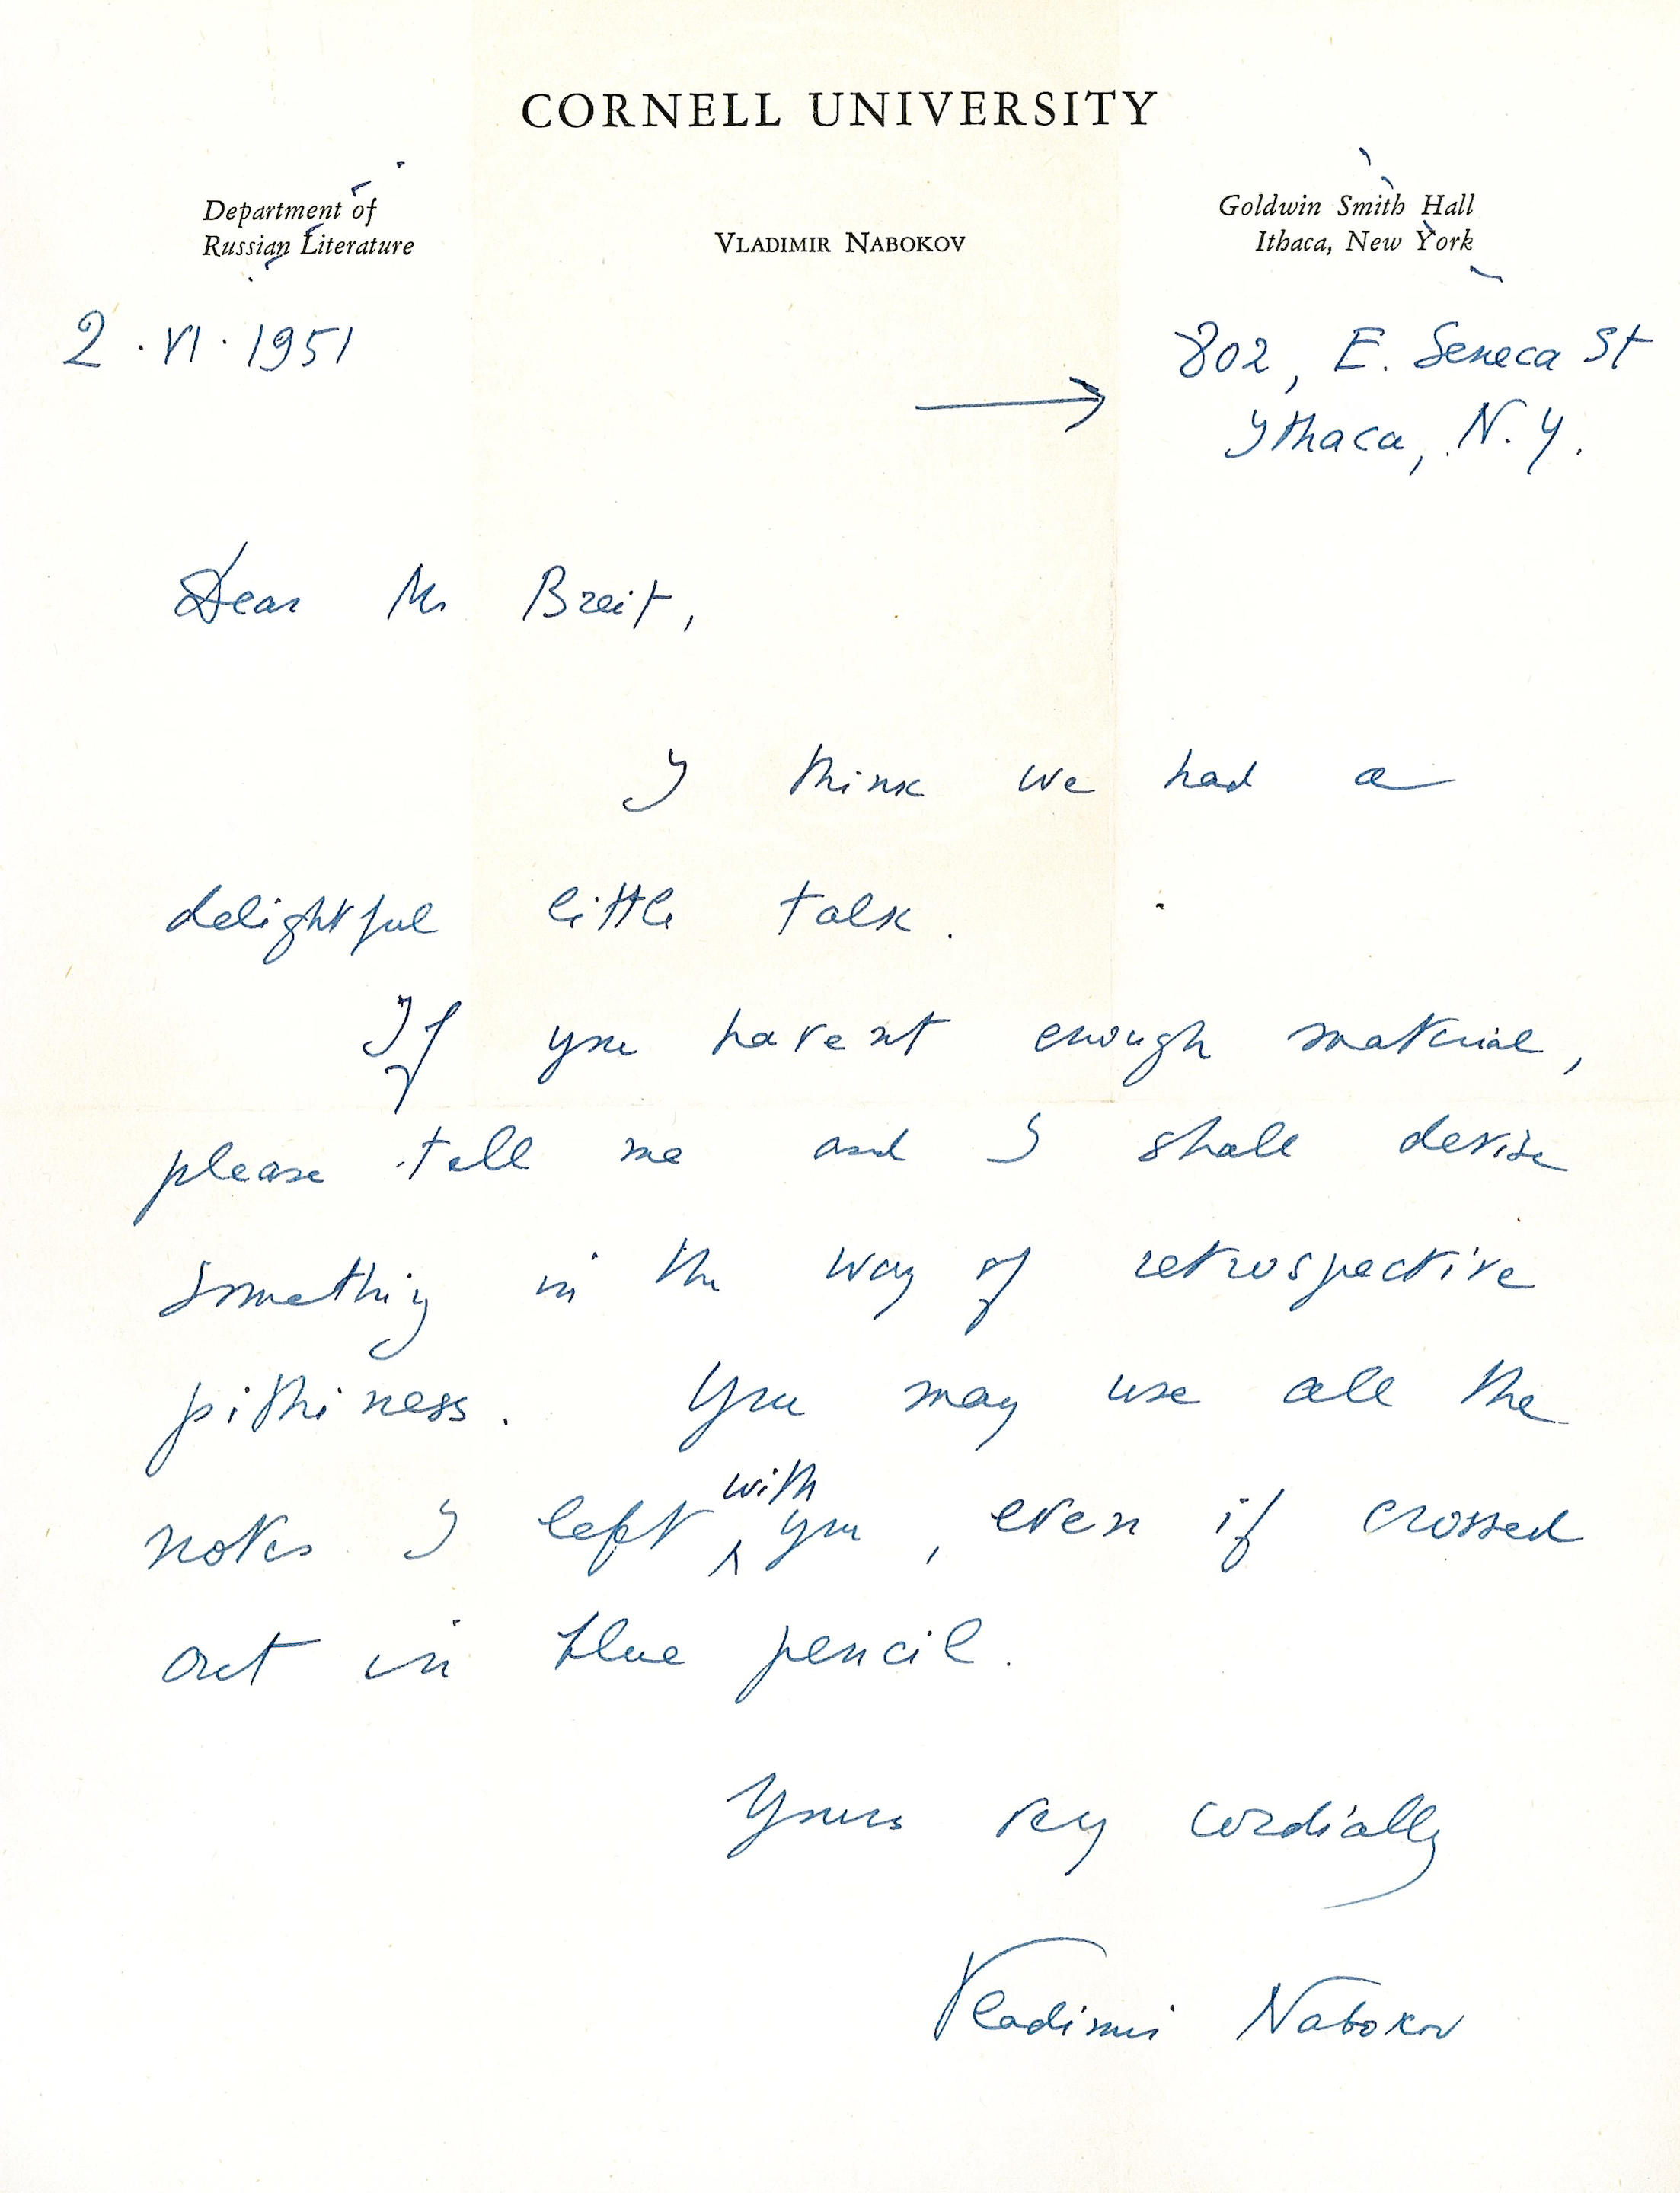 CORNELL UNIVERSITY
Department of
Russian Literature
VLADIMIR NABOKOV
Goldwin Smith Hall
Ithaca, New York
2 · VI · 1951
802, E. Seneca St
Ithaca, N.Y.
Dear Mr Breit,
I think we had a
delightful little talk.
If you havent enough material,
please tell me and I shall devise
something in the way of retrospective
pithiness. You may use all the
notes I left with you, even if crossed
out in blue pencil.
Yours very cordially
Vladimir Nabokov